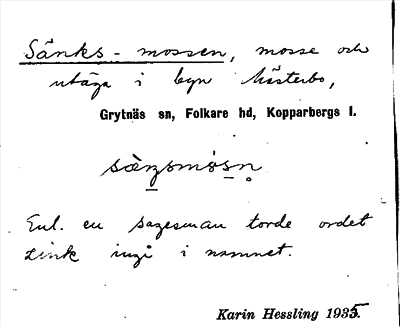 Sänks-mossen, mosse och
utäga i byn Mästerbo,
Grytnäs sn, Folkare hd, Kopparbergs l.
Enl. en sagesman torde ordet
zink ingå i namnet.
Karin Hessling 1935.